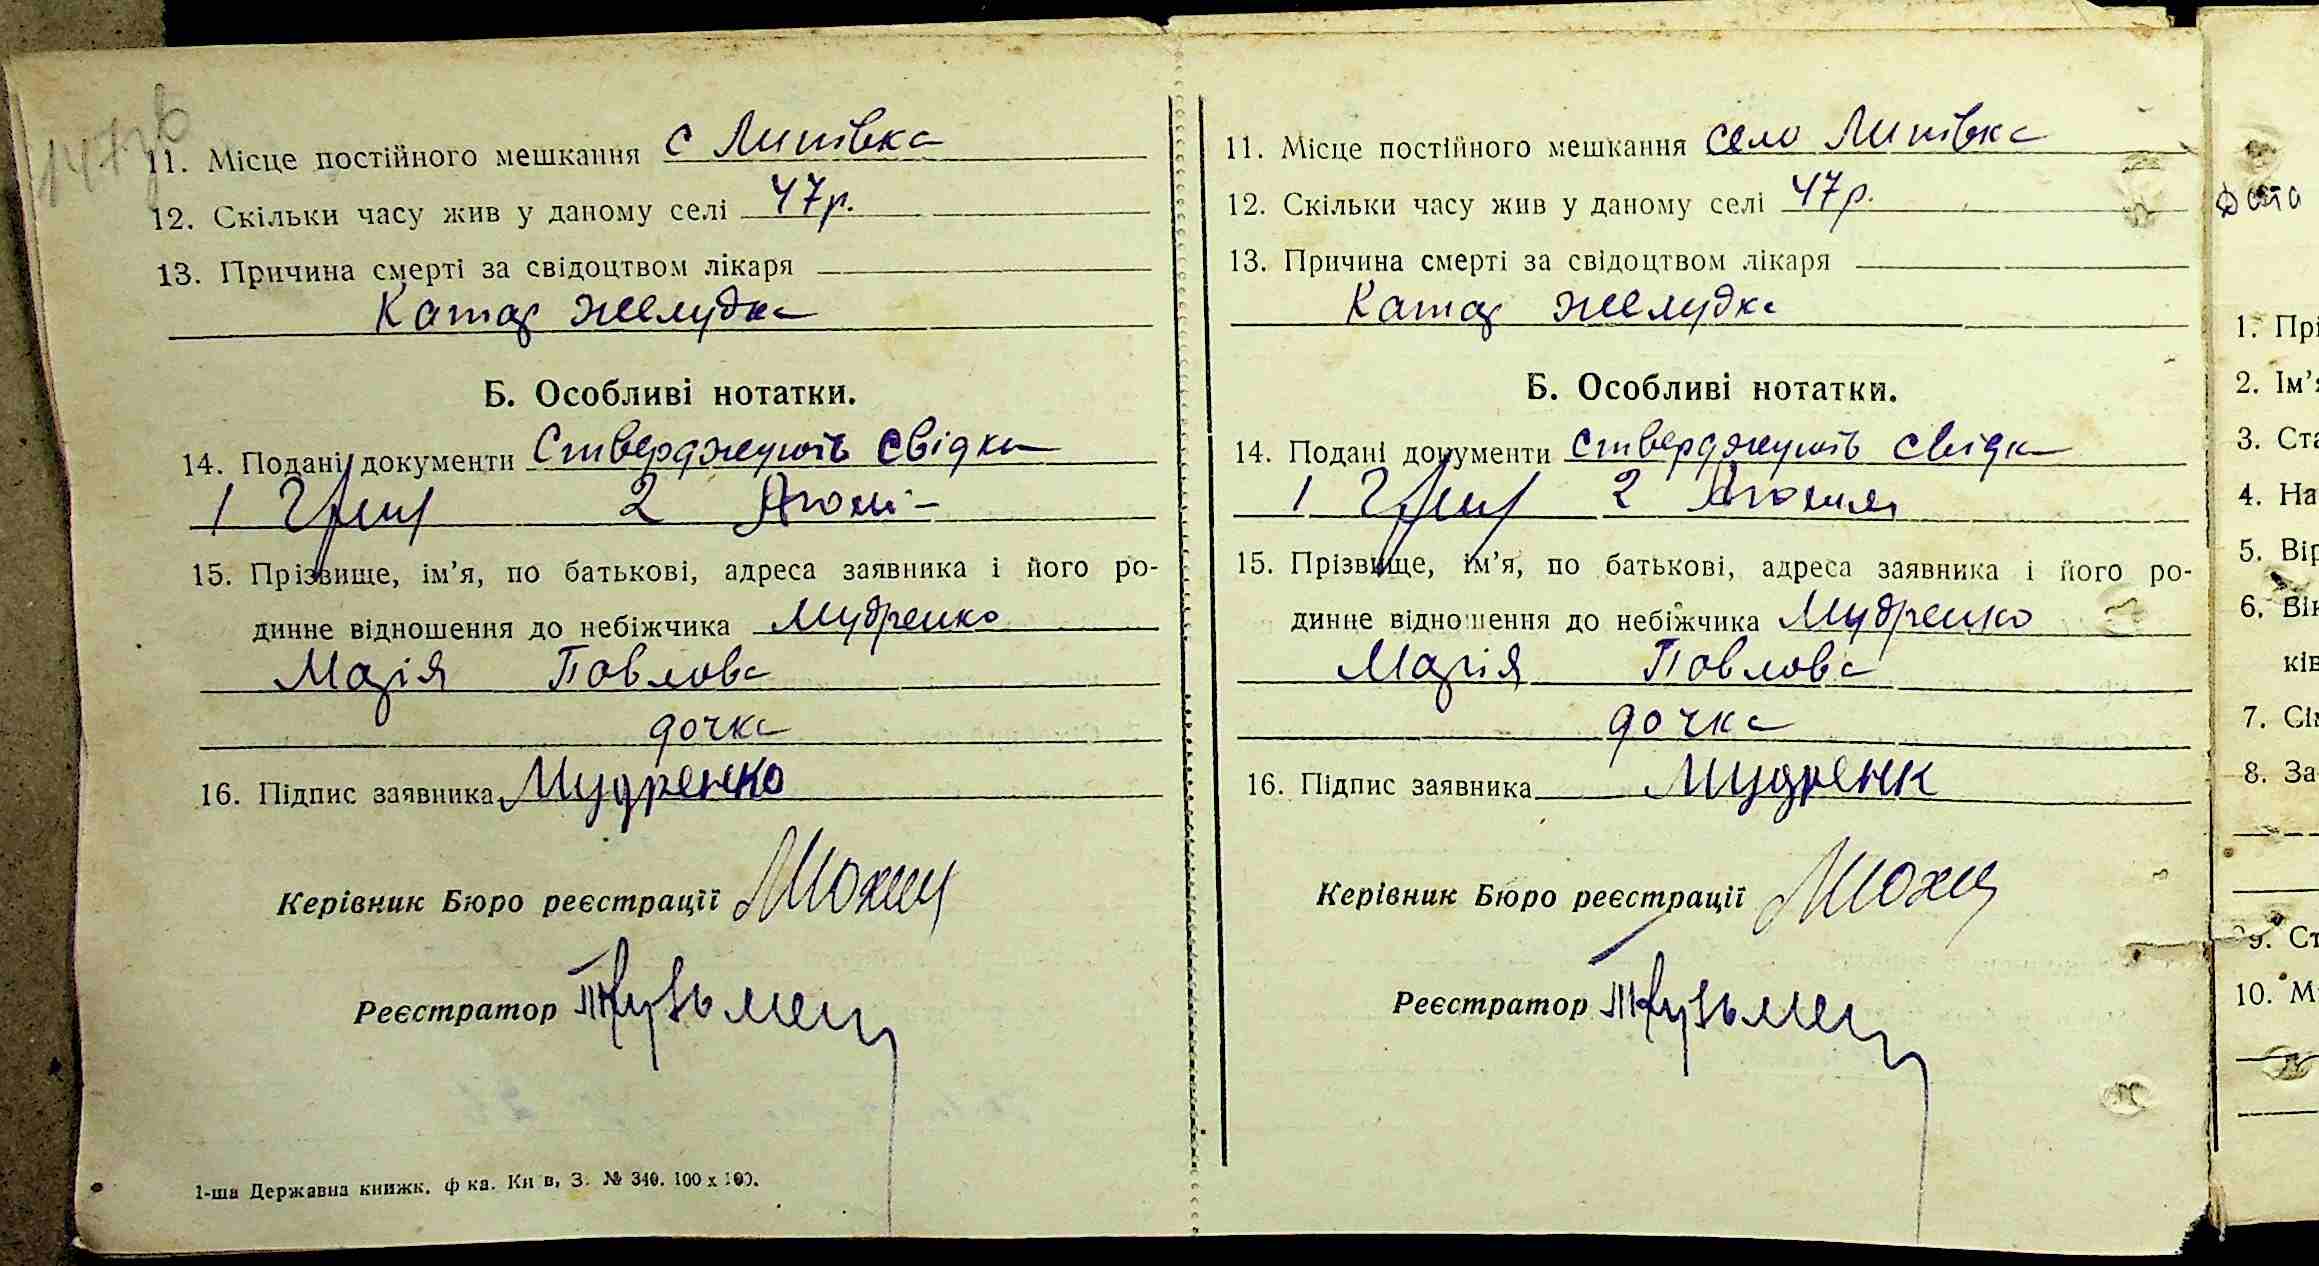 11. Місце постійного мешкання с Липівка
12. Скільки часу жив у даному селі 47р.
13. Причина смерті за свідоцтвом лікаря
Катар желудка
Б. Особливі нотатки.
14. Подані документи Стверджують свідки
1 2
15. Прізвище, ім’я, по батькові, адреса заявника і його ро-
динне відношення до небіжчика Мудренко
Марія Павлова
дочка
16. Підпис заявника Мудренко
Керівник Бюро реєстрації
Реєстратор
1-ша Державна книжк. ф ка. Ки в, З. № 340. 100 х 100.
11. Місце постійного мешкання село Липівка
12. Скільки часу жив у даному селі 47р.
13. Причина смерті за свідоцтвом лікаря
Катар желудка
Б. Особливі нотатки.
14. Подані документи стверджують свідки
1 2
15. Прізвище, ім’я, по батькові, адреса заявника і його ро-
динне відношення до небіжчика Мудренко
Марія Павлова
дочка
16. Підпис заявника Мудренк
Керівник Бюро реєстрації
Реєстратор
Дата
1. Прі
2. Ім’я
3. Ста
4. На
5. Вір
6. Вік
ків
7. Сім
8. За
9. Ст
10. М